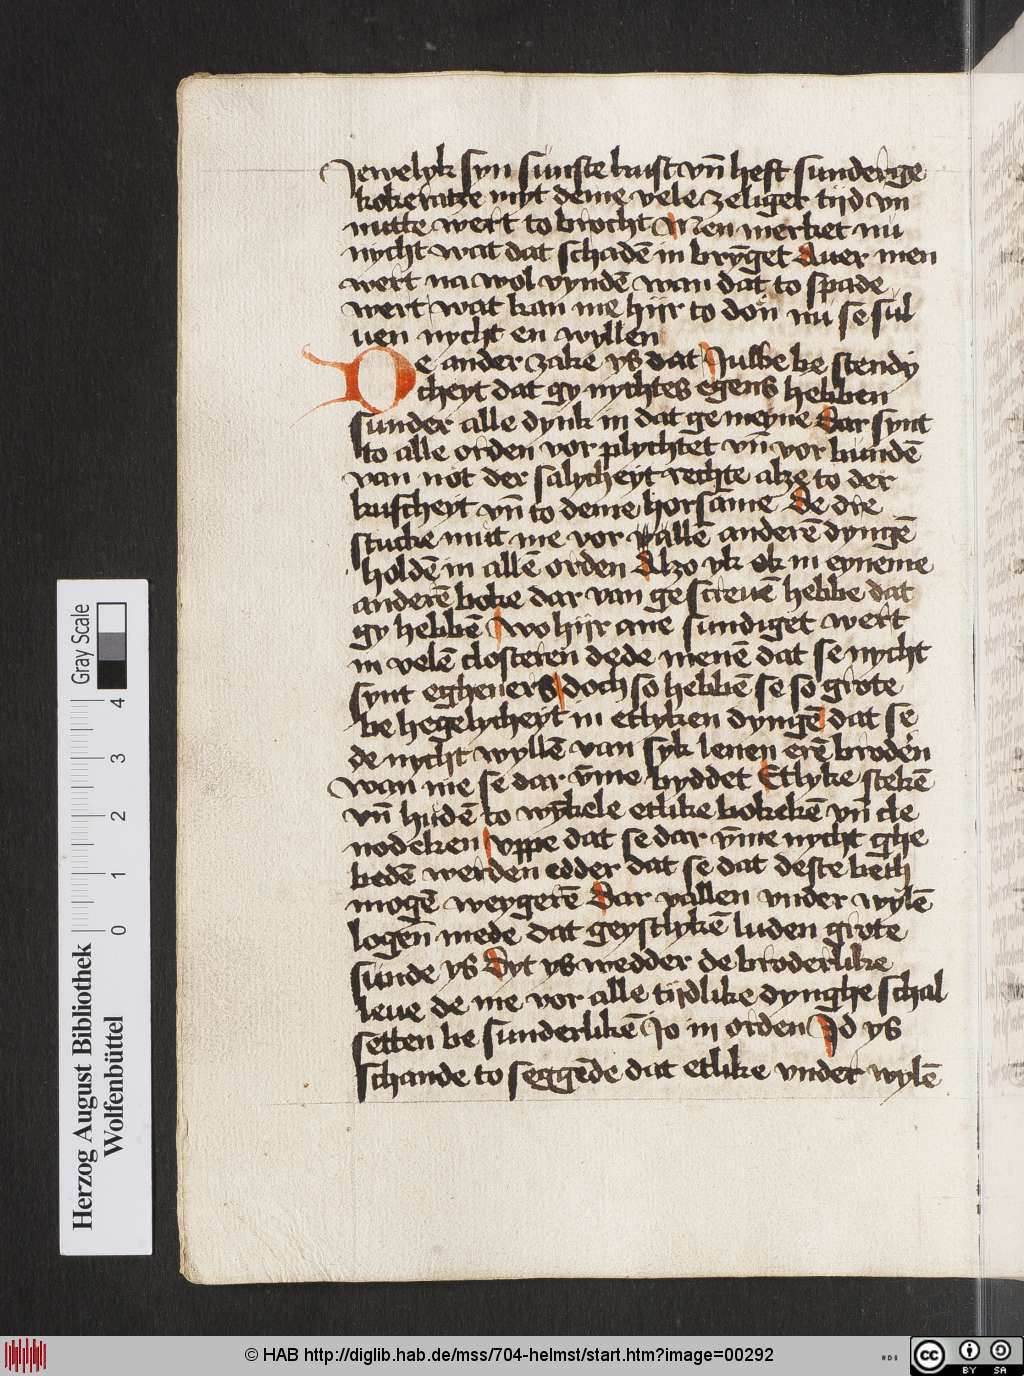 Jewelyk syn sunste kust vn̄ heft sunderge
kokeratze myt deme vele zeliger tijd vn
nutte wert to brocht Men merket nu
nycht wat dat schadē in brȳget Auer men
wert na wol vyndē wan dat to spade
wert wat kan me hijr to don nu se sul
uen nycht en wyllen
De ander zake ys dat Julbe be stendy
cheyt dat gy nychtes egens hebben
sunder alle dynk in dat gemeyne Dar synt
to alle orden vor plychtet vn̄ vor bundē
van not der salycheyt rechte alze to der
kuscheyt vn̄ to deme horsame De dre
stucke mut me vor allē anderē dyngē
holdē in allē orden Alzo yk ok in eyneme
anderē boke dar van gescreuē hebbe dat
gy hebbē Wo hijr ane sundiget wert
in velē closteren dede menē dat se nycht
synt egheners doch so hebbē se so grote
be hegelycheyt in etlyken dyngē dat se
de nycht wyllē van syk lenen erē broderen
wan me se dar v̄me byddet Etlyke stekē
vn̄ hudē to wȳkele etlike bokekē vn̄ cle
nodeken vppe dat se dar v̄me nycht ghe
bedē werden edder dat se dat deste beth
mogē weygerē Dar vallen vnder wylē
logen̄ mede dat geystlykē luden grote
sunde ys Dyt ys wedder de broderlike
leue de me vor alle tijdlike dynghe schal
setten be sunderlikē Jo in orden Jd ys
schande to seggēde dat etlike vnder wylē
Herzog August Bibliothek
Wolfenbüttel
0 1 2 3 4
Gray Scale
© HAB http://diglib.hab.de/mss/704-helmst/start.htm?image=00292
HAB
cc BY SA